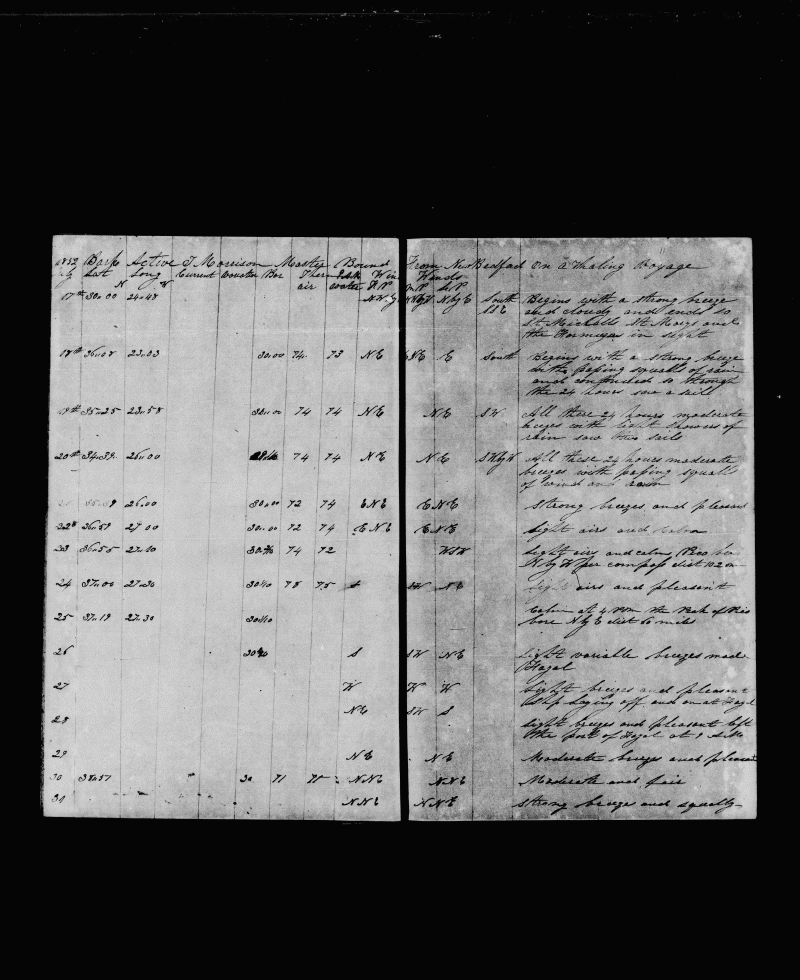 1852 Bark Active J Morrison Master Bound From New Bedford On A Whaling Voyage
Lat Long Current Bar Ther water Winds
N W air water
17th 24.48 N W South Begins with a strong breeze
SSE and cloudy and ends so
St Michells St Marys and
the in sight
18th 36.08 23.03 30.00 74 73 N E E South Begins with a strong breeze
with passing squalls of rain
and continued so through
the 24 hours saw a sail
19th 35.25 23.58 30.00 74 74 N E N E S W All these 24 hours moderate
breezes with light showers of
rain saw sails
20th 34.39 26.00 74 74 N E N E S W by W All these 24 hours moderate
breezes with passing squalls
of wind and rain
26.00 30.00 72 74 E N E E N E Strong breezes and pleasant
22d 36.59 27.00 30.00 72 74 E N E E N E Light airs and calm
23 36.55 27.10 74 72 WSW Light airs and calm
N by W per compass dist 102 m
24 37.00 27.30 30.10 78 75 S SW N E Light airs and pleasant
Calm at 4 PM the Peak of Pico
25 37.19 27.30 30.10 bore N by E dist miles
26 S SW N E Light variable breezes made
Fayal
27 W W W Light breezes and pleasant
Ship laying off and on at Fayal
28 N E SW S Light breezes and pleasant left
the port of Fayal at
29 N E N E Moderate breezes and pleasant
30 38.51 30 71 N N E N N E Moderate and fair
31 N N E N N E Strong breeze and squally